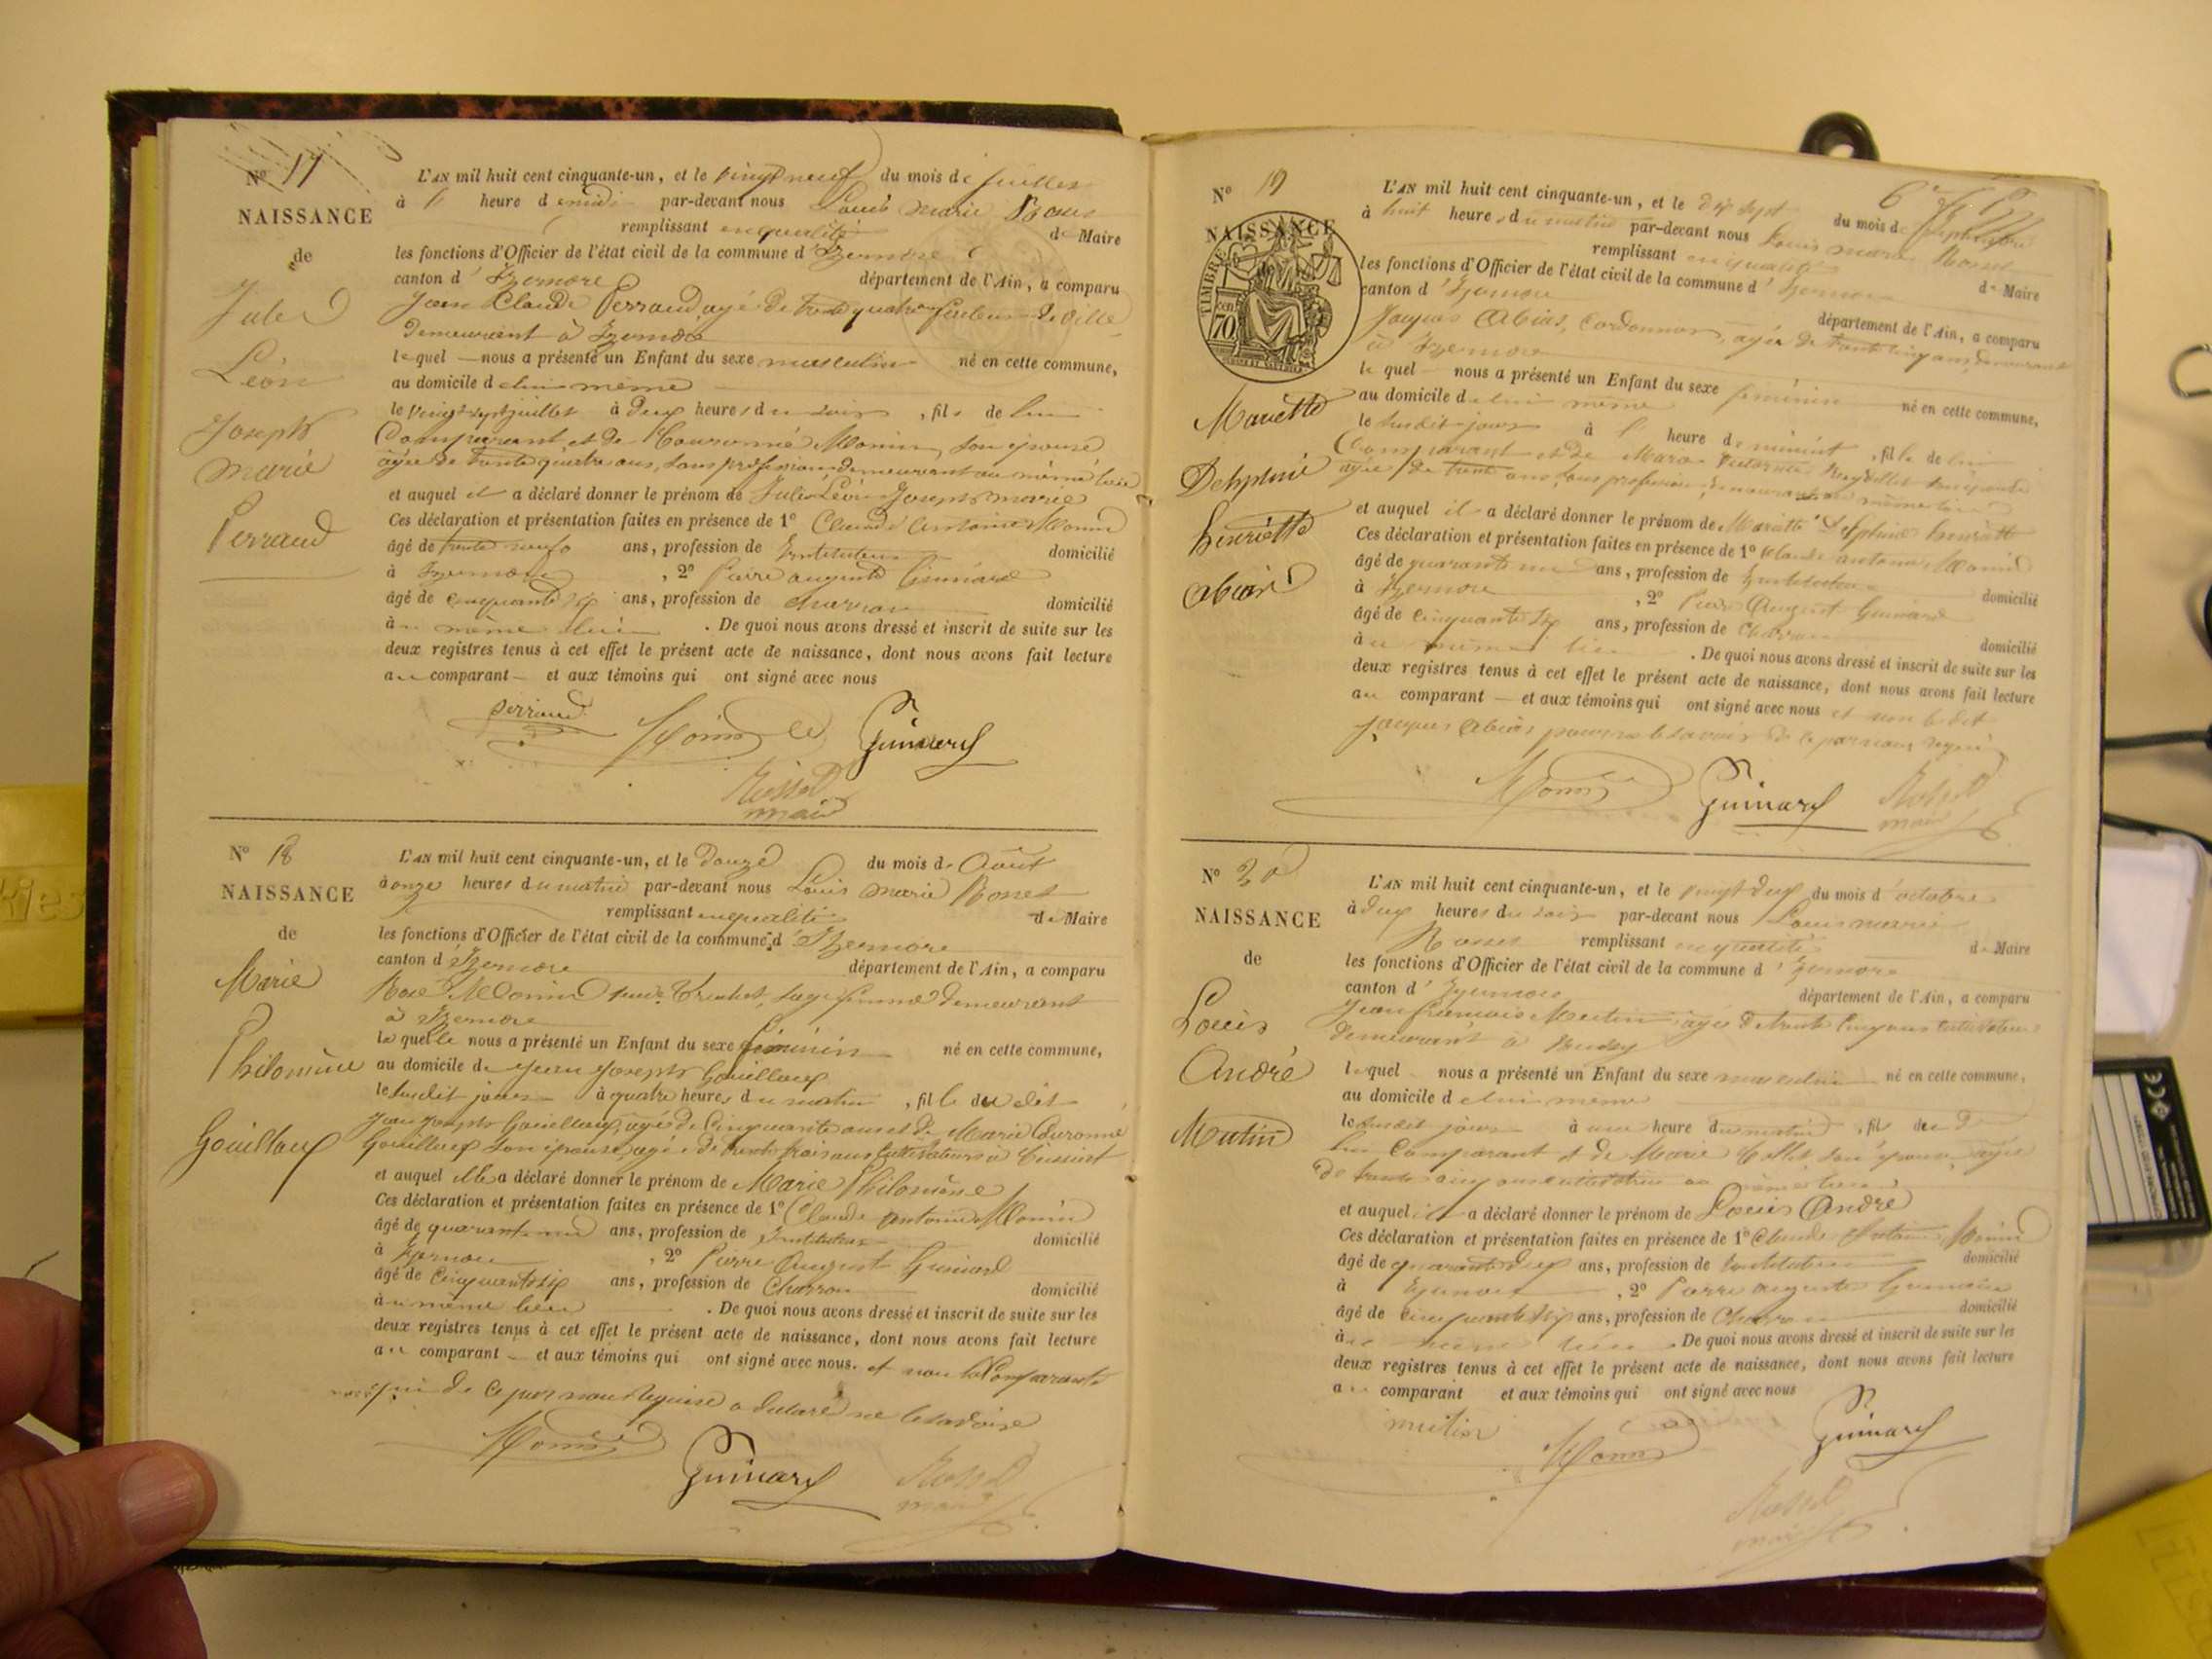 Nº 17
NAISSANCE
de
Jules
Léon
Joseph
marie
Perraud
L'AN mil huit cent cinquante-un, et le vingt neuf du mois de juillet
à heure d midi par-devant nous Louis marie Rosset
remplissant en qualité de Maire
les fonctions d'Officier de l'état civil de la commune d'Izernore
canton d'Izernore département de l'Ain, a comparu
Jean Claude Perraud, agé de trente quatre ans
demeurant à Izernore
lequel nous a présenté un Enfant du sexe masculin né en cette commune,
au domicile de lui même
le vingt sept juillet à deux heures du soir, fils de lui
Comparant et de Couronné Monin, son épouse
agée de trente quatre ans, sans profession demeurant au même lieu
et auquel il a déclaré donner le prénom de Jules Léon Joseph marie
Ces déclaration et présentation faites en présence de 1º Claude antoine Monin
âgé de ans, profession de Instituteur domicilié
à Izernore, 2º Pierre auguste Guinard
âgé de cinquante six ans, profession de charron domicilié
au même lieu. De quoi nous avons dressé et inscrit de suite sur les
deux registres tenus à cet effet le présent acte de naissance, dont nous avons fait lecture
au comparant et aux témoins qui ont signé avec nous
perraud Monin Guinard
Rosset
maire
Nº 18
NAISSANCE
de
Marie
Philomène
Gouilloux
L'AN mil huit cent cinquante-un, et le Douze du mois d' Août
à onze heures du matin par-devant nous Louis marie Rosset
remplissant en qualité de Maire
les fonctions d'Officier de l'état civil de la commune d'Izernore
canton d'Izernore département de l'Ain, a comparu
Monin sage femme demeurant
à Izernore
laquelle nous a présenté un Enfant du sexe féminin né en cette commune,
au domicile de Jean Joseph Gouilloux
le susdit jour à quatre heures du matin, fille du dit
Jean Joseph Gouilloux, agé de Cinquante ans et de Marie Couronné
Gouilloux son épouse, agée de trente trois ans Cultivateurs à
et auquel elle a déclaré donner le prénom de Marie Philomène
Ces déclaration et présentation faites en présence de 1º Claude antoine Monin
âgé de quarante un ans, profession de Instituteur domicilié
à Izernore, 2º Pierre August Guinard
âgé de Cinquante six ans, profession de Charron domicilié
au même lieu. De quoi nous avons dressé et inscrit de suite sur les
deux registres tenus à cet effet le présent acte de naissance, dont nous avons fait lecture
au comparant et aux témoins qui ont signé avec nous. et non la Comparante
qui de ce par nous Requise a declaré ne le savoir
Monin Guinard Rosset
maire
Nº 19
NAISSANCE
TIMBRE
70
Mariette
Delphine
henriette
abias
L'AN mil huit cent cinquante-un, et le dix sept du mois de septembre
à huit heures du matin par-devant nous Louis marie Rosset
remplissant en qualité de Maire
les fonctions d'Officier de l'état civil de la commune d'Izernore
canton d'Izernore département de l'Ain, a comparu
Jacques Abias, Cordonnier, agé de trente cinq ans, demeurant
à Izernore
lequel nous a présenté un Enfant du sexe féminin né en cette commune,
au domicile de lui même
le susdit jour à heure de minuit, fille de lui
Comparant et de Marie son épouse
agée de trente ans sans profession demeurant au même lieu
et auquel il a déclaré donner le prénom de Mariette Delphine henriette
Ces déclaration et présentation faites en présence de 1º Claude antoine Monin
âgé de quarante un ans, profession de Instituteur domicilié
à Izernore, 2º Pierre August Guinard
âgé de Cinquante six ans, profession de Charron domicilié
au même lieu. De quoi nous avons dressé et inscrit de suite sur les
deux registres tenus à cet effet le présent acte de naissance, dont nous avons fait lecture
au comparant et aux témoins qui ont signé avec nous et non le dit
Jacques Abias pour ne le savoir de ce par nous requis
Monin Guinard Rosset
maire
Nº 20
NAISSANCE
de
Louis
André
Mutin
L'AN mil huit cent cinquante-un, et le vingt deux du mois d'octobre
à deux heures du soir par-devant nous Louis marie
Rosset remplissant en qualité de Maire
les fonctions d'Officier de l'état civil de la commune d'Izernore
canton d'Izernore département de l'Ain, a comparu
Jean francois Mutin agé de trente Cinq ans cultivateur
demeurant à
lequel nous a présenté un Enfant du sexe masculin né en cette commune,
au domicile de lui même
le susdit jour à une heure du matin, fils de
lui Comparant et de Marie son épouse, agée
de trente cinq ans cultivatrice au même lieu
et auquel il a déclaré donner le prénom de Louis André
Ces déclaration et présentation faites en présence de 1º Claude Antoine Monin
âgé de quarante deux ans, profession de Instituteur domicilié
à Izernore, 2º Pierre auguste Guinard
âgé de Cinquante six ans, profession de Charron domicilié
au même lieu. De quoi nous avons dressé et inscrit de suite sur les
deux registres tenus à cet effet le présent acte de naissance, dont nous avons fait lecture
au comparant et aux témoins qui ont signé avec nous
mutin Monin Guinard
Rosset
maire